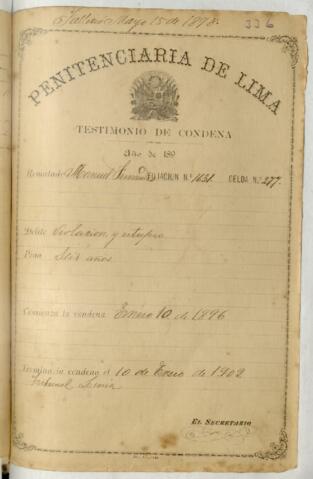 Falleció Mayo 15 de 1898.
336
PENITENCIARIA DE LIMA
TESTIMONIO DE CONDENA
Año de 189
Rematado Manuel FILIACION N.º 1631. CELDA N.º 277.
Delito Violacion y estupro
Pena Seis años
Comienza la condena Enero 10 de 1896
Termina la condena el 10 de Enero de 1902
Tribunal
EL SECRETARIO